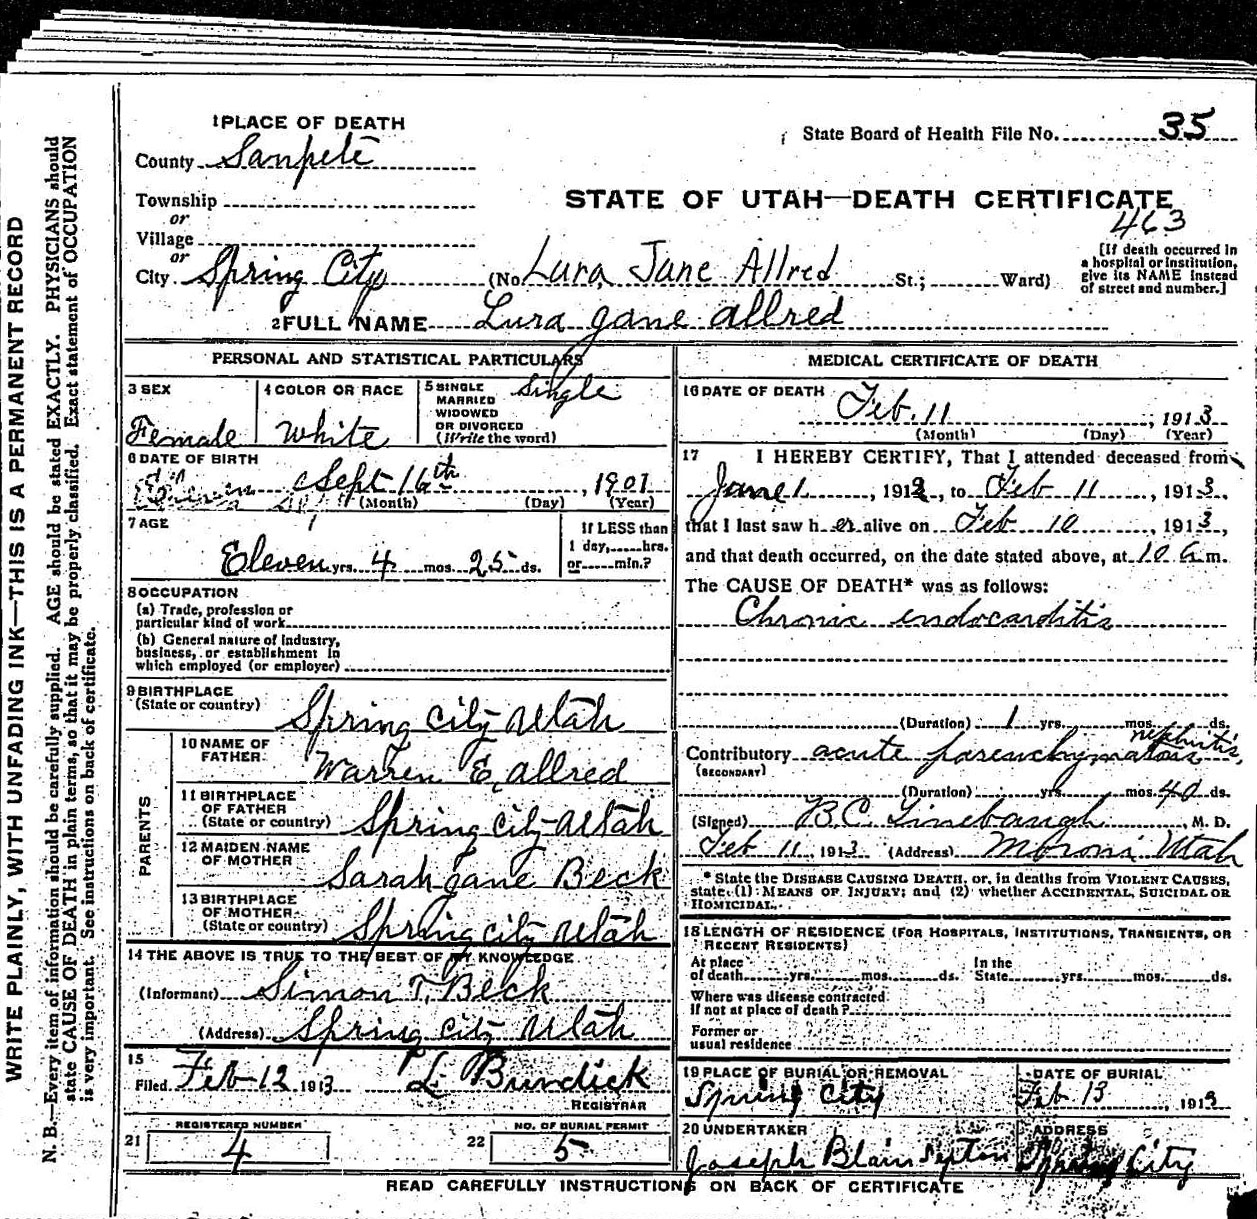 WRITE PLAINLY, WITH UNFADING INK—THIS IS A PERMANENT RECORD
N. B.—Every item of information should be carefully supplied. AGE should be stated EXACTLY. PHYSICIANS should
state CAUSE OF DEATH in plain terms, so that it may be properly classified. Exact statement of OCCUPATION
is very important. See instructions on back of certificate.
1 PLACE OF DEATH
County Sanpete
Township
or
Village
or
City Spring City
State Board of Health File No. 35
STATE OF UTAH—DEATH CERTIFICATE
463
(No Lura Jane Allred St.; Ward)
[If death occurred in
a hospital or institution,
give its NAME instead
of street and number.]
2 FULL NAME Lura Jane Allred
PERSONAL AND STATISTICAL PARTICULARS
3 SEX
Female
4 COLOR OR RACE
White
5 SINGLE
MARRIED
WIDOWED
OR DIVORCED
(Write the word)
Single
6 DATE OF BIRTH
Sept 16th, 1901
(Month) (Day) (Year)
7 AGE
Eleven yrs. 4 mos. 25 ds.
If LESS than
1 day, hrs.
or min.?
8 OCCUPATION
(a) Trade, profession or
particular kind of work
(b) General nature of industry,
business, or establishment in
which employed (or employer)
9 BIRTHPLACE
(State or country)
Spring City Utah
PARENTS
10 NAME OF
FATHER
Warren E Allred
11 BIRTHPLACE
OF FATHER
(State or country)
Spring City Utah
12 MAIDEN NAME
OF MOTHER
Sarah Jane Beck
13 BIRTHPLACE
OF MOTHER
(State or country)
Spring City Utah
14 THE ABOVE IS TRUE TO THE BEST OF MY KNOWLEDGE
(Informant) Simon T. Beck
(Address) Spring City Utah
15
Filed Feb 12 1913 L. Burdick
REGISTRAR
21 REGISTERED NUMBER
4
22 NO. OF BURIAL PERMIT
5
MEDICAL CERTIFICATE OF DEATH
16 DATE OF DEATH
Feb. 11, 1913
(Month) (Day) (Year)
17 I HEREBY CERTIFY, That I attended deceased from
June 1, 1912, to Feb 11, 1913,
that I last saw her alive on Feb 10, 1913,
and that death occurred, on the date stated above, at 10 a.m.
The CAUSE OF DEATH* was as follows:
Chronic endocarditis
(Duration) 1 yrs. mos. ds.
Contributory acute parenchymatous nephritis,
(SECONDARY)
(Duration) yrs. mos. 40 ds.
(Signed) B.C. Linebaugh, M. D.
Feb 11, 1913 (Address) Moroni Utah
* State the DISEASE CAUSING DEATH, or, in deaths from VIOLENT CAUSES,
state (1) MEANS OF INJURY; and (2) whether ACCIDENTAL, SUICIDAL OR
HOMICIDAL.
18 LENGTH OF RESIDENCE (FOR HOSPITALS, INSTITUTIONS, TRANSIENTS, OR
RECENT RESIDENTS)
At place
of death yrs. mos. ds.
In the
State yrs. mos. ds.
Where was disease contracted
If not at place of death?
Former or
usual residence
19 PLACE OF BURIAL OR REMOVAL
Spring City
DATE OF BURIAL
Feb 13, 1913
20 UNDERTAKER
Joseph Blain Sexton
ADDRESS
Spring City
READ CAREFULLY INSTRUCTIONS ON BACK OF CERTIFICATE